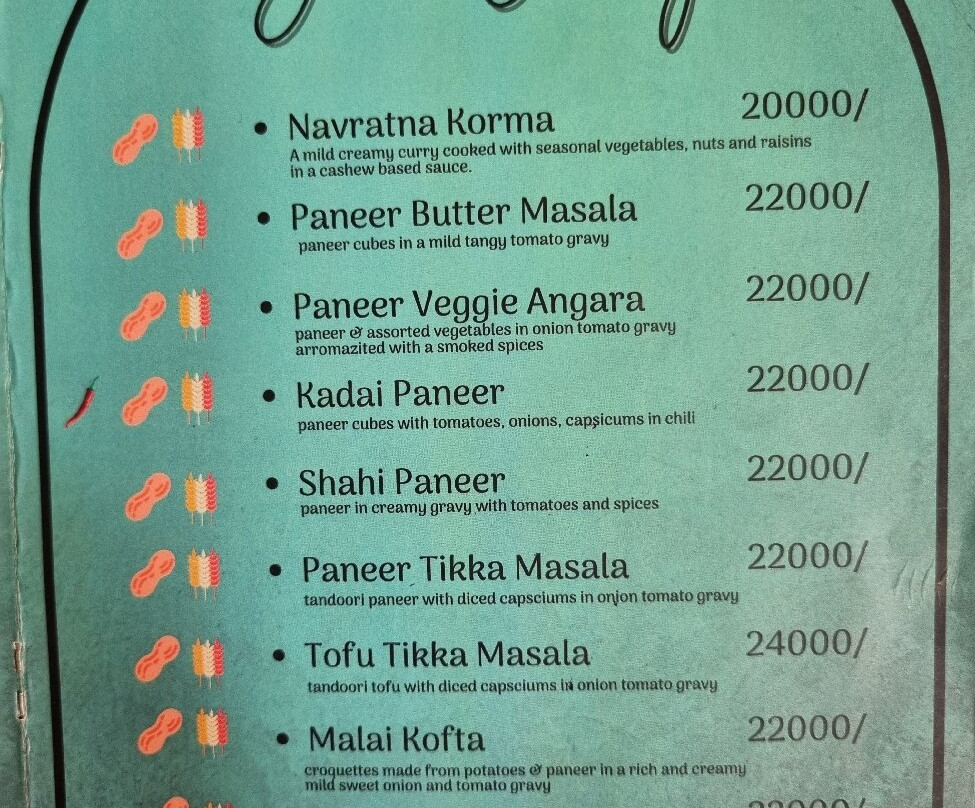 Navratna Korma 20000/
A mild creamy curry cooked with seasonal vegetables, nuts and raisins
in a cashew based sauce.
Paneer Butter Masala 22000/
paneer cubes in a mild tangy tomato gravy
Paneer Veggie Angara 22000/
paneer & assorted vegetables in onion tomato gravy
arromazited with a smoked spices
Kadai Paneer 22000/
paneer cubes with tomatoes, onions, capsicums in chili
Shahi Paneer 22000/
paneer in creamy gravy with tomatoes and spices
Paneer Tikka Masala 22000/
tandoori paneer with diced capsciums in onion tomato gravy
Tofu Tikka Masala 24000/
tandoori tofu with diced capsciums in onion tomato gravy
Malai Kofta 22000/
croquettes made from potatoes & paneer in a rich and creamy
mild sweet onion and tomato gravy